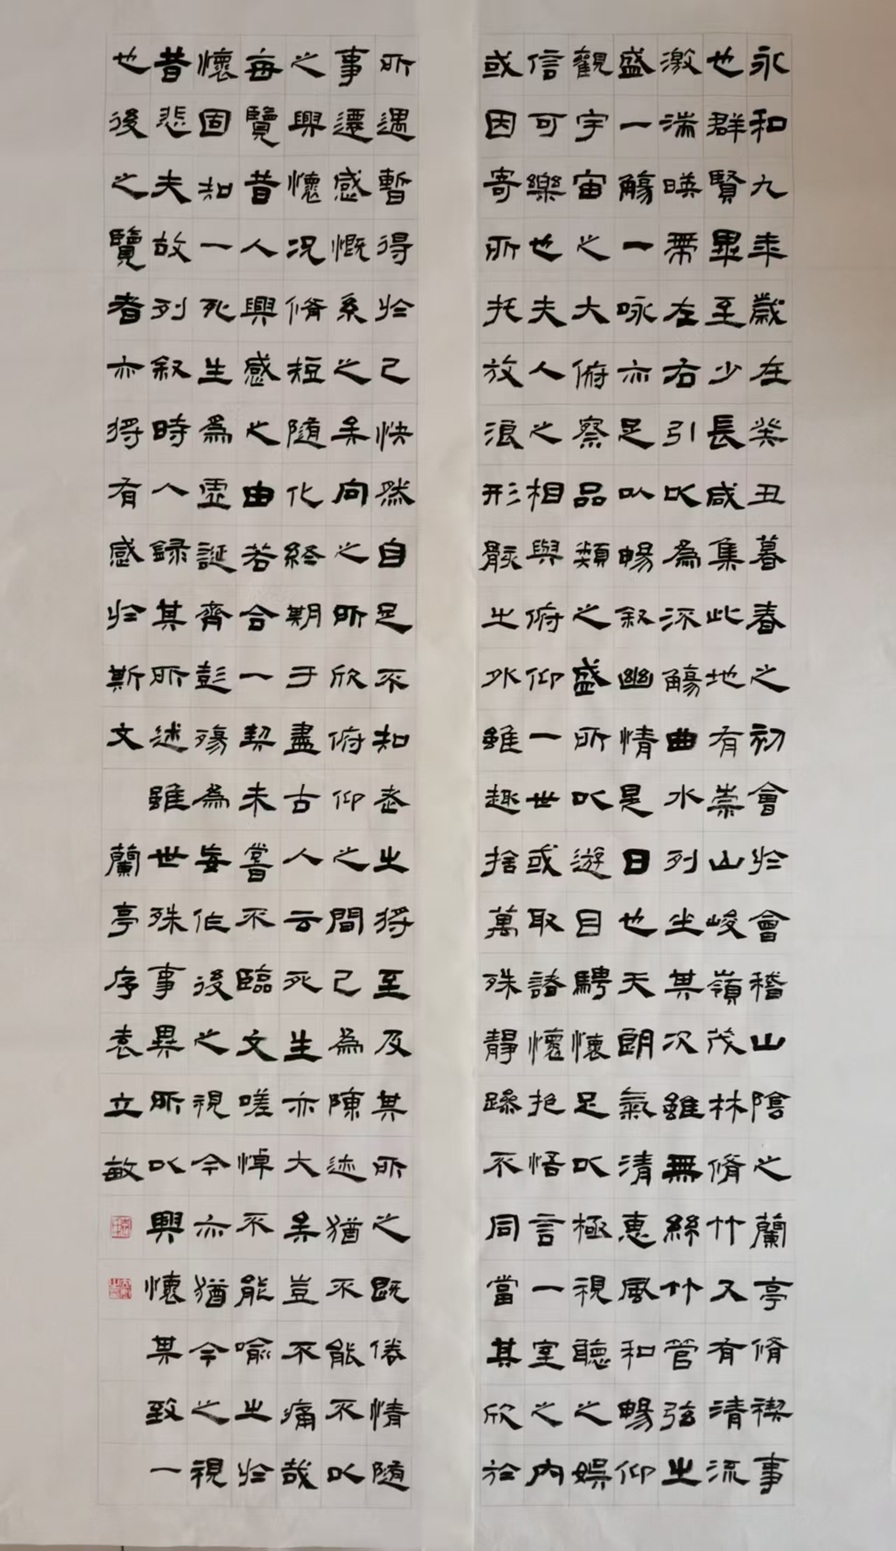 永和九年歲在癸丑暮春之初會於會稽山陰之蘭亭脩禊事
也群賢畢至少長咸集此地有崇山峻嶺茂林脩竹又有清流
激湍暎帶左右引以為流觴曲水列坐其次雖無絲竹管弦之
盛一觴一咏亦足以暢叙幽情是日也天朗氣清惠風和暢仰
觀宇宙之大俯察品類之盛所以遊目騁懷足以極視聽之娛
信可樂也夫人之相與俯仰一世或取諸懷抱悟言一室之內
或因寄所托放浪形骸之外雖趣捨萬殊靜躁不同當其欣於
所遇暫得於己快然自足不知老之將至及其所之既倦情隨
事遷感慨系之矣向之所欣俯仰之間已為陳迹猶不能不以
之興懷况脩短隨化終期于盡古人云死生亦大矣豈不痛哉
每覽昔人興感之由若合一契未嘗不臨文嗟悼不能喻之於
懷固知一死生為虛誕齊彭殤為妄作後之視今亦猶今之視
昔悲夫故列叙時人録其所述雖世殊事異所以興懷果致一
也後之覽者亦將有感於斯文 蘭亭序袁立敏